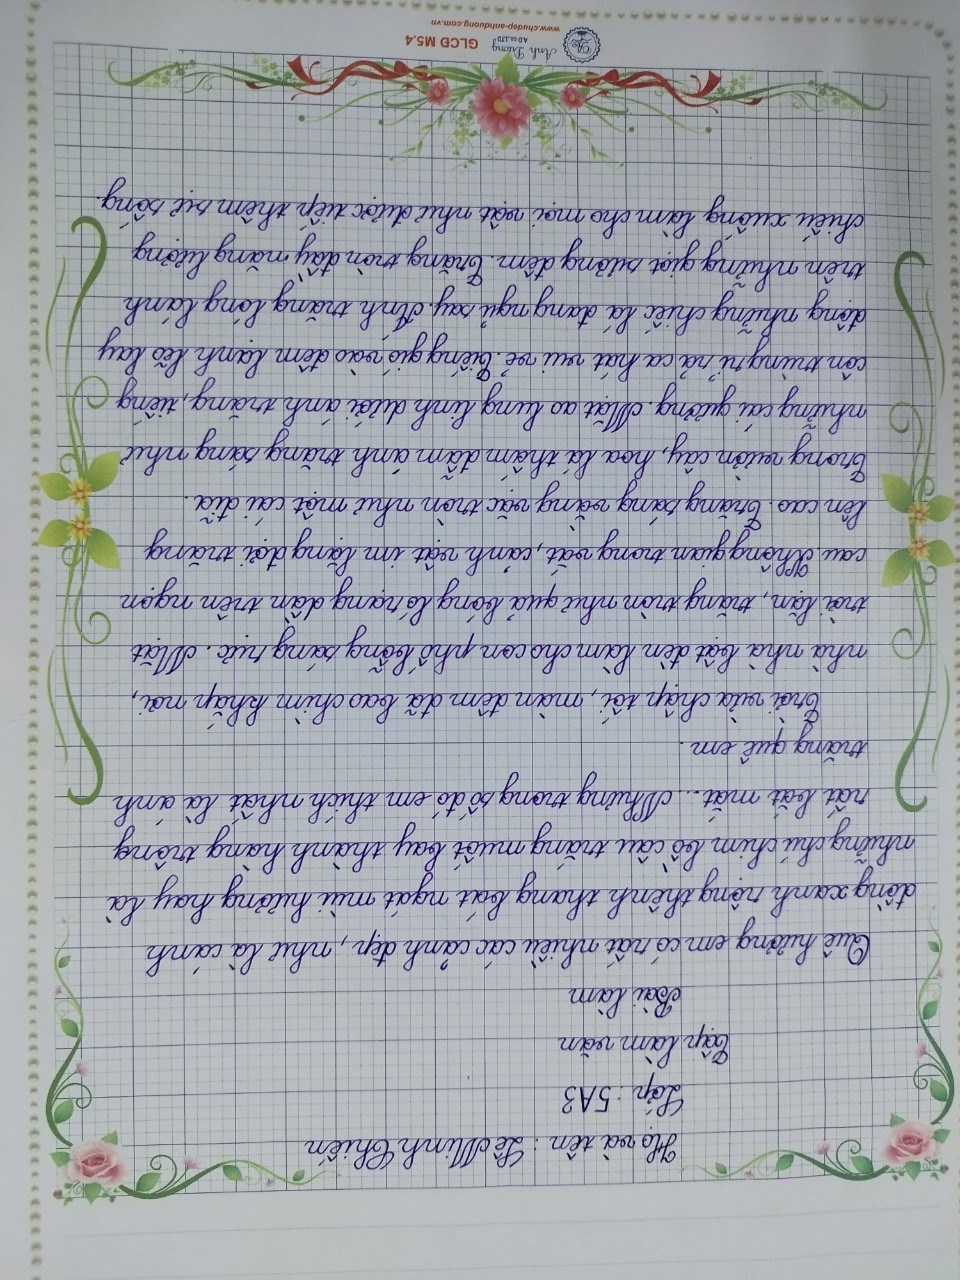 Họ và tên : Lê Minh Chiến
Lớp : 5A3
Tập làm văn
Bài làm
Quê hương em có rất nhiều các cảnh đẹp, như là cánh
đồng xanh rộng thênh thang bát ngát mùi hương hay là
những chú chim bồ câu trắng muốt bay thành hàng trông
rất bắt mắt... Nhưng trong số đó em thích nhất là ánh
trăng quê em.
Trời vừa chập tối, màn đêm đã bao chùm khắp nơi,
nhà nhà bật đèn làm cho con phố bỗng sáng rực. Mặt
trời lặn, trăng tròn như quả bóng ló rạng dần trên ngọn
cau. Không gian trong vắt, cảnh vật im lặng đợi trăng
lên cao. Trăng sáng vằng vặc tròn như một cái đĩa.
Trong vườn cây, hoa lá thấm đẫm ánh trăng sáng như
những cái gương. Mặt ao lung linh dưới ánh trăng, tiếng
côn trùng rỉ rả ca hát vui vẻ. Tiếng gió vào đêm lạnh lẽo lay
động những chiếc lá đang ngủ say. Ánh trăng lóng lánh
trên những giọt sương đêm. Trăng tròn đầy măng lường
chiếu xuống làm cho mọi vật như được tiếp thêm sự sống.
Ánh Dương
A.D Co.,LTD
GLCD M5.4
www.chudep-anhduong.com.vn